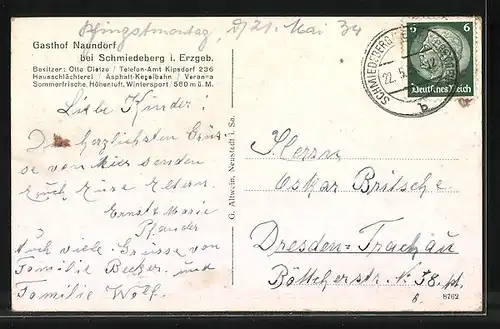 Pfingstmontag, d. 21. Mai 34
Gasthof Naundorf
bei Schmiedeberg i. Erzgeb.
Besitzer: Otto Dietze / Telefon-Amt Kipsdorf 236
Hausschlächterei / Asphalt-Kegelbahn / Veranda
Sommerfrische, Höhenluft, Wintersport / 580 m ü. M.
Liebe Kinder!
Die herzlichsten Grüs-
se von hier senden
Euch Eure Eltern.
Ernst & Marie
Auch viele Grüsse von
Familie Becker und
Familie Wolf.
G. Altwein, Neustadt i. Sa.
SCHMIEDEBERG
22.5.
b
6 6
Deutsches Reich
Herrn
Oskar Britsche
Dresden-Trachau
Böttcherstr. N. 38. pt.
8762